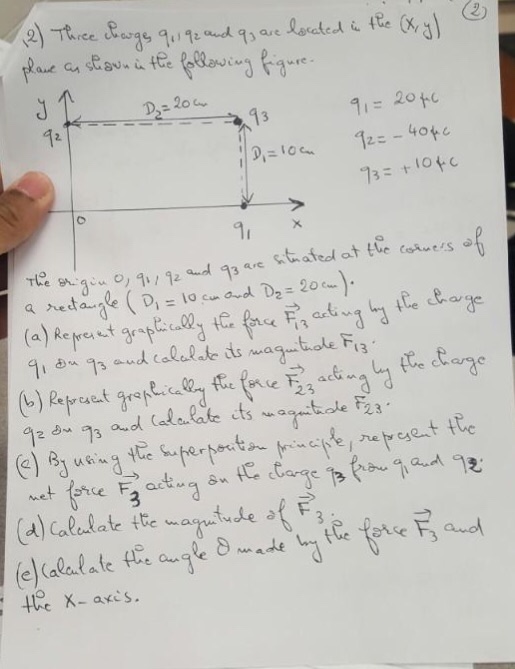 (2)
2) Three charges q1, q2 and q3 are located in the (x, y)
plane as shown in the following figure.
y
D2 = 20 cm
q3
q2
D1 = 10 cm
0
q1
x
q1 = 20 μC
q2 = - 40 μC
q3 = + 10 μC
The origin 0, q1, q2 and q3 are situated at the corners of
a rectangle (D1 = 10 cm and D2 = 20 cm).
(a) Represent graphically the force F⃗13 acting by the charge
q1 on q3 and calculate its magnitude F13.
(b) Represent graphically the force F⃗23 acting by the charge
q2 on q3 and calculate its magnitude F23.
(c) By using the superposition principle, represent the
net force F⃗3 acting on the charge q3 from q1 and q2.
(d) Calculate the magnitude of F⃗3.
(e) Calculate the angle θ made by the force F⃗3 and
the X-axis.